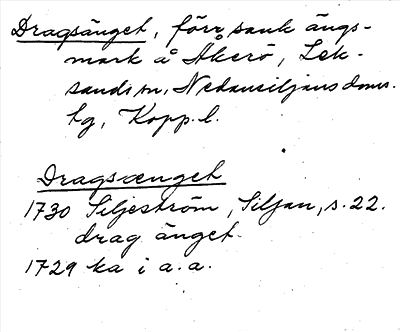 Dragsänget, förr sank ängs-
mark å Åkerö, Lek-
sands sn, Nedansiljans doms.
tg, Kopp. l.
Dragsænget
1730 Siljeström, Siljan, s. 22.
drag änget.
1729 ka i a.a.